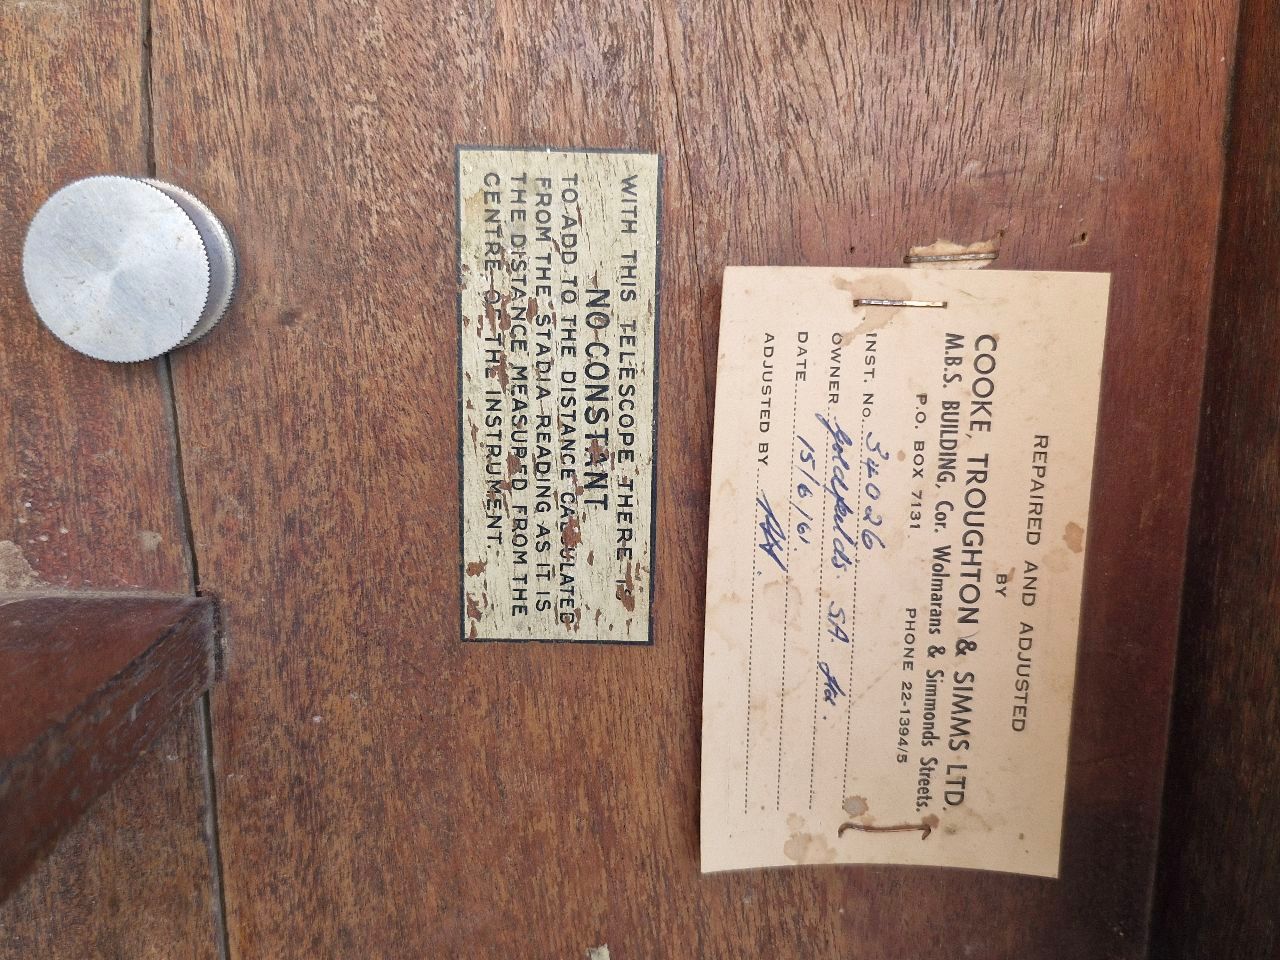 REPAIRED AND ADJUSTED
BY
COOKE, TROUGHTON & SIMMS LTD.
M.B.S. BUILDING, Cor. Wolmarans & Simmonds Streets.
P.O. BOX 7131 PHONE 22-1394/5
INST. No. 34026
OWNER Goldfields. SA
DATE 15/6/61.
ADJUSTED BY
WITH THIS TELESCOPE THERE IS
NO CONSTANT
TO ADD TO THE DISTANCE CALCULATED
FROM THE STADIA READING AS IT IS
THE DISTANCE MEASURED FROM THE
CENTRE OF THE INSTRUMENT.